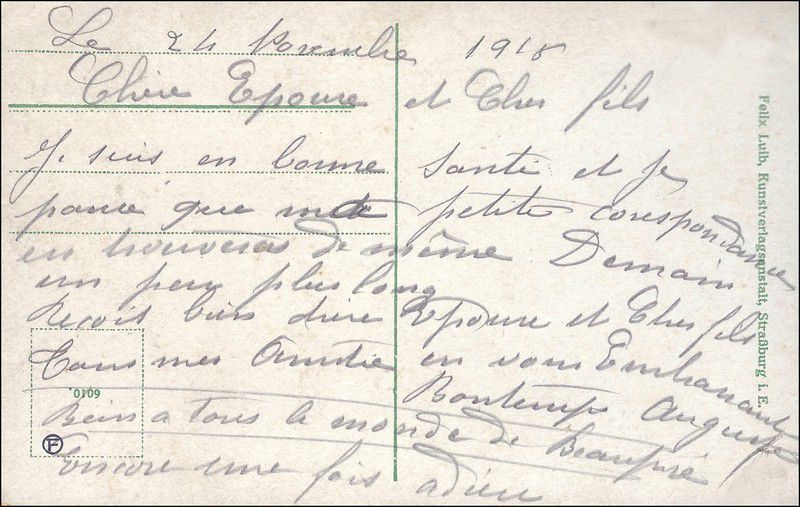 Le 24 Novembre 1918
Chère Epouse et Cher fils
Je suis en bonne santé et Je
pense que ma petite corespondance
en trouveras de même Demain
un peu plus long
Reçois bien chère Epouse et Cher fils
Tous mes Amitie en vous Embrassant
Bontemps Auguste
Bien a tous le monde de Beaupré
Encore une fois adieu
Felix Luib, Kunstverlagsanstalt, Straßburg i. E.
0109
F